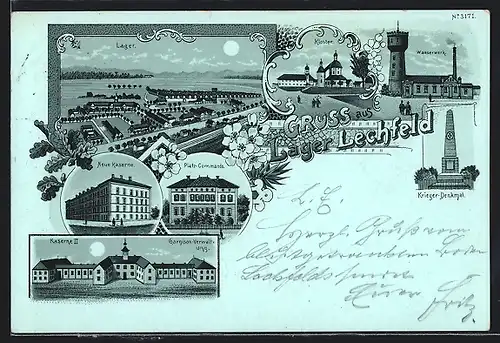 No 3171.
Lager.
Kloster.
Wasserwerk.
GRUSS aus
Lager Lechfeld
Neue Kaserne.
Platz-Commando.
Krieger-Denkmal.
Kaserne II
Garnison-Verwalt-
ung.
L. E.
Herzl. Gruß vom
Lechfelde
Euer Fritz